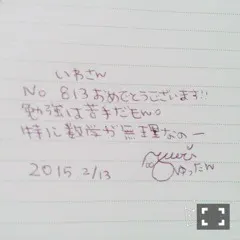 いおさん
No 813おめでとうございます!!
勉強は苦手だもん。
特に数学が無理なのー
2015 2/13
yuuri
ゆったん